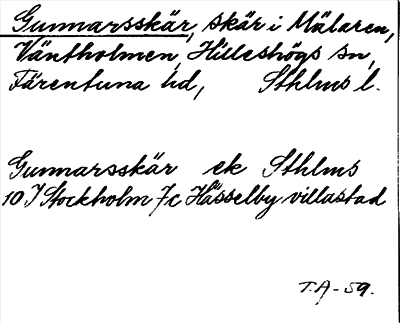 Gunnarsskär, skär i Mälaren,
Väntholmen, Hilleshögs sn,
Färentuna hd, Sthlms l.
Gunnarsskär ek Sthlms
10 I Stockholm 7c Hässelby villastad
T.A-59.